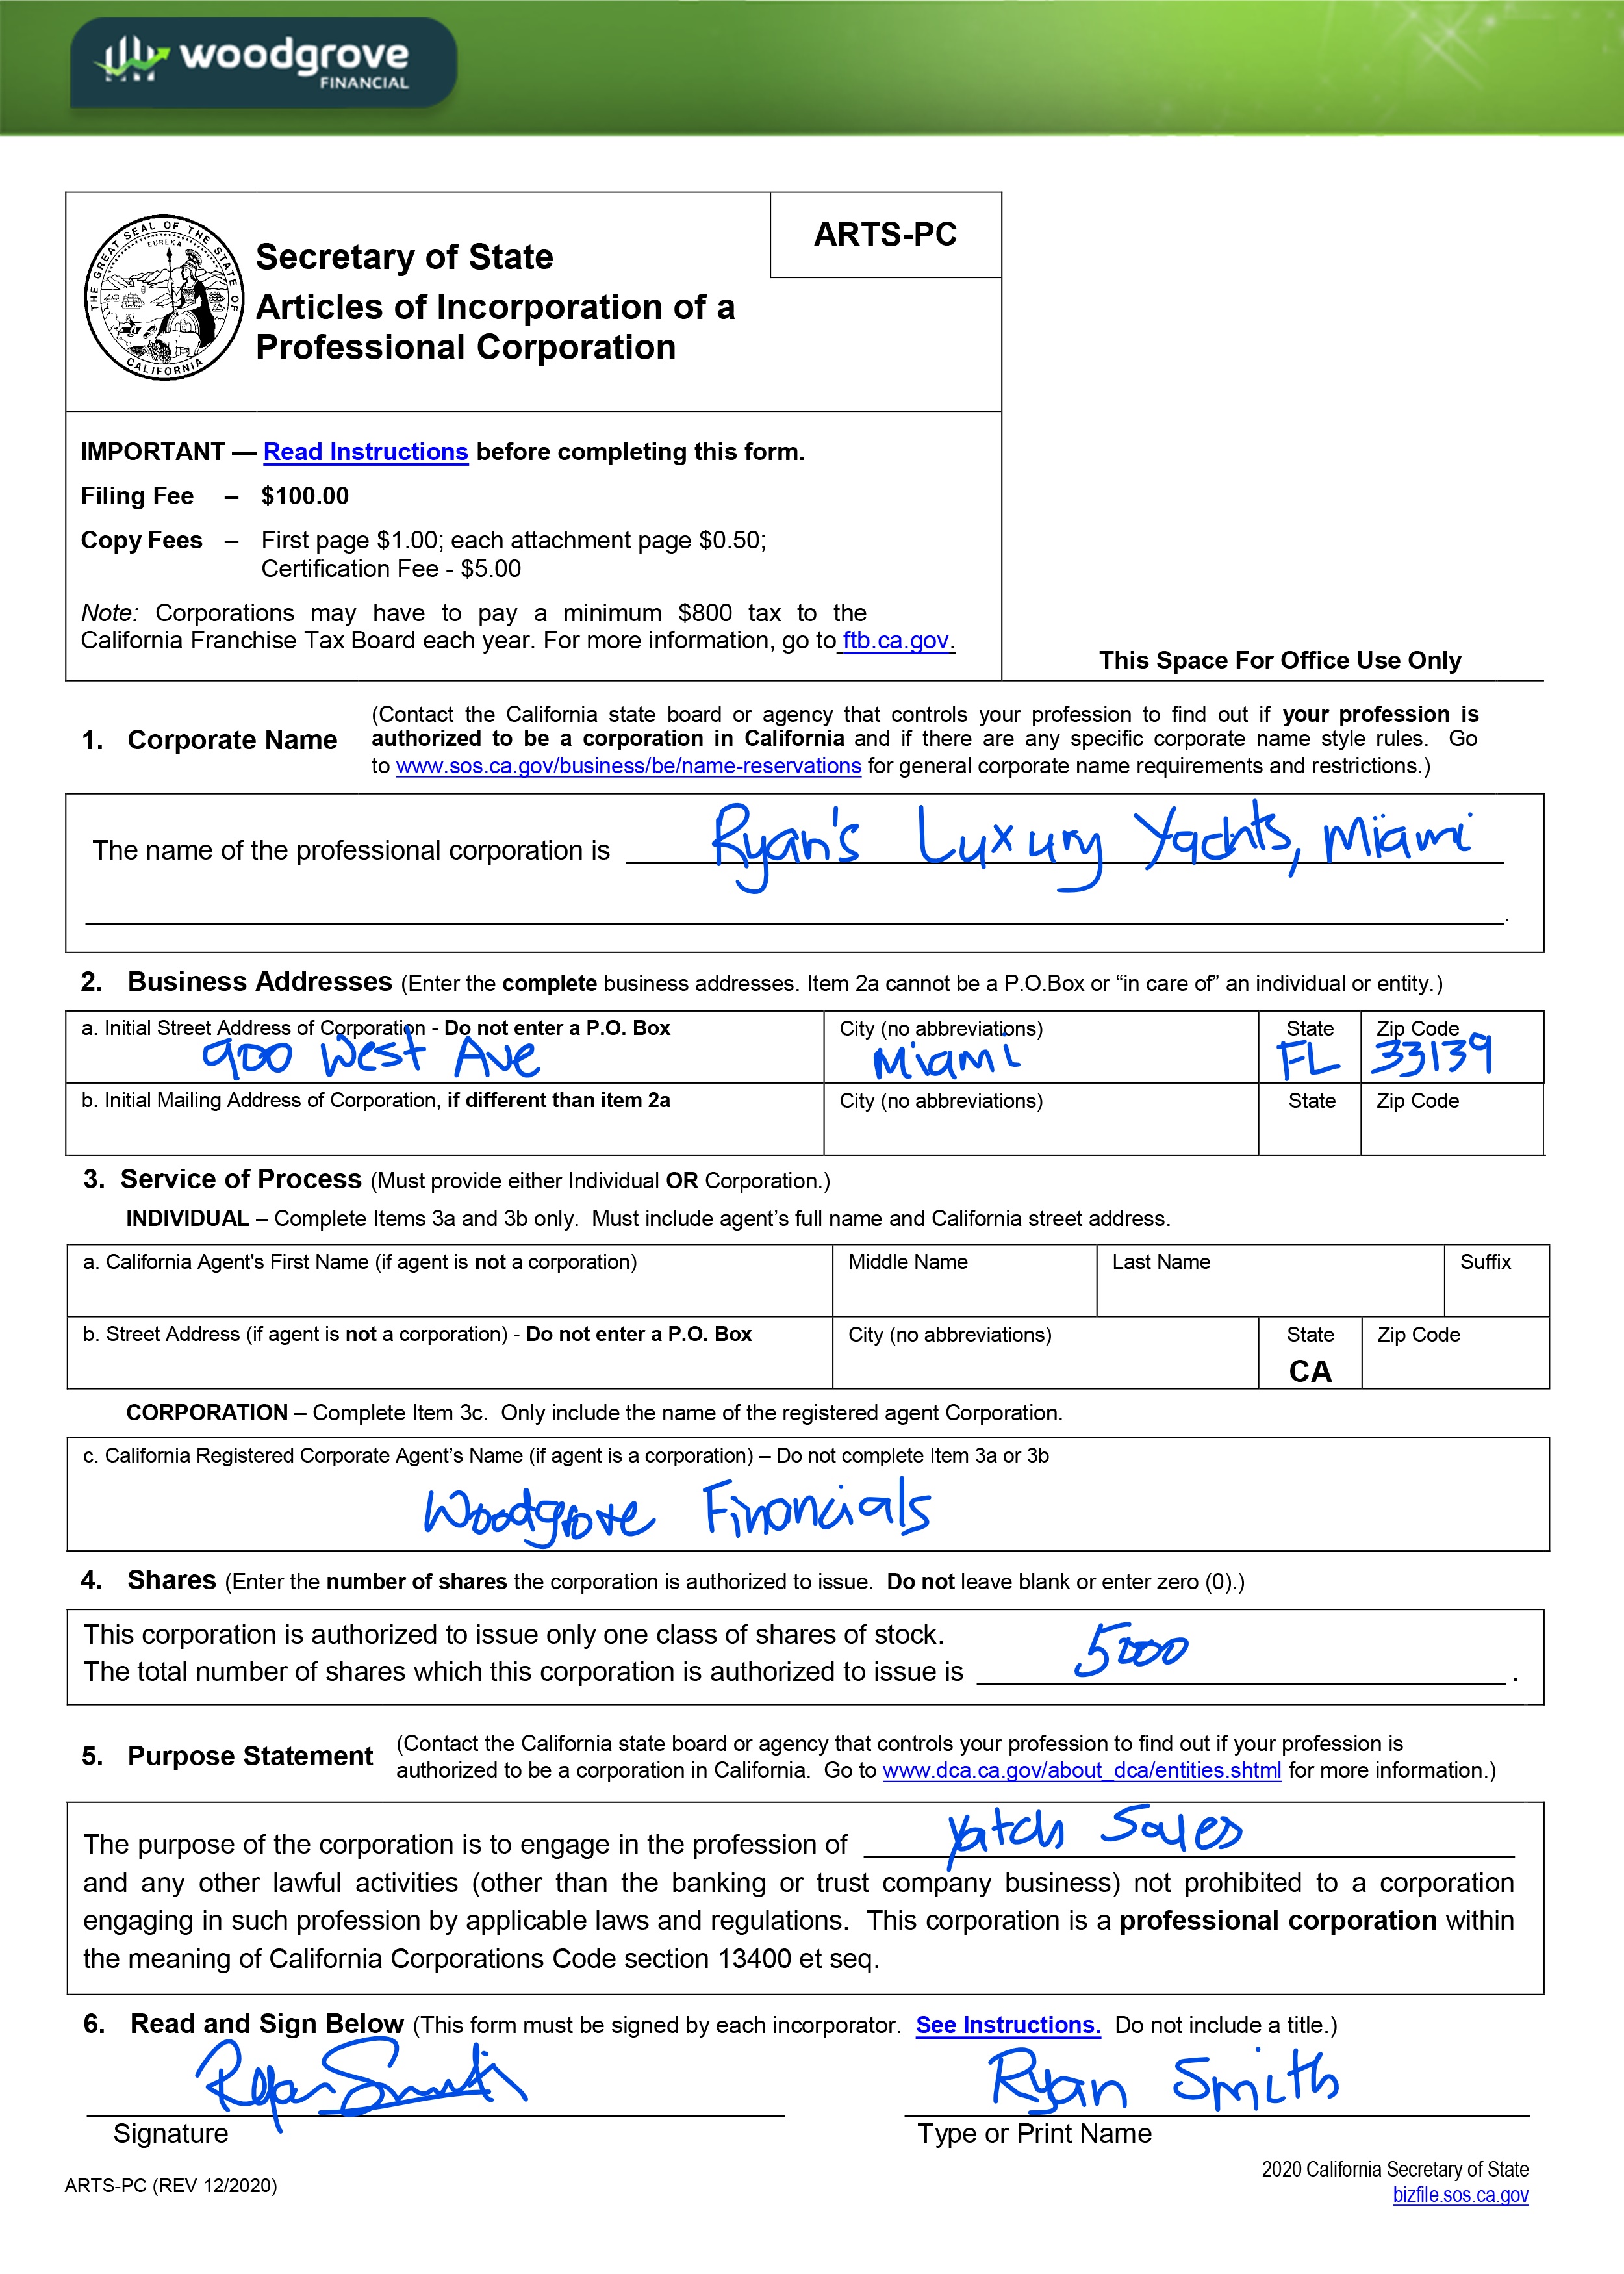 woodgrove
FINANCIAL
THE GREAT SEAL OF THE STATE OF CALIFORNIA
EUREKA
Secretary of State
Articles of Incorporation of a
Professional Corporation
ARTS-PC
IMPORTANT — Read Instructions before completing this form.
Filing Fee – $100.00
Copy Fees – First page $1.00; each attachment page $0.50;
Certification Fee - $5.00
Note: Corporations may have to pay a minimum $800 tax to the
California Franchise Tax Board each year. For more information, go to ftb.ca.gov.
This Space For Office Use Only
1. Corporate Name
(Contact the California state board or agency that controls your profession to find out if your profession is
authorized to be a corporation in California and if there are any specific corporate name style rules. Go
to www.sos.ca.gov/business/be/name-reservations for general corporate name requirements and restrictions.)
The name of the professional corporation is Ryan's Luxury Yachts, Miami
.
2. Business Addresses (Enter the complete business addresses. Item 2a cannot be a P.O.Box or “in care of” an individual or entity.)
a. Initial Street Address of Corporation - Do not enter a P.O. Box City (no abbreviations) State Zip Code
900 West Ave Miami FL 33139
b. Initial Mailing Address of Corporation, if different than item 2a City (no abbreviations) State Zip Code
3. Service of Process (Must provide either Individual OR Corporation.)
INDIVIDUAL – Complete Items 3a and 3b only. Must include agent’s full name and California street address.
a. California Agent's First Name (if agent is not a corporation) Middle Name Last Name Suffix
b. Street Address (if agent is not a corporation) - Do not enter a P.O. Box City (no abbreviations) State Zip Code
CA
CORPORATION – Complete Item 3c. Only include the name of the registered agent Corporation.
c. California Registered Corporate Agent’s Name (if agent is a corporation) – Do not complete Item 3a or 3b
Woodgrove Financials
4. Shares (Enter the number of shares the corporation is authorized to issue. Do not leave blank or enter zero (0).)
This corporation is authorized to issue only one class of shares of stock.
The total number of shares which this corporation is authorized to issue is 5000 .
5. Purpose Statement
(Contact the California state board or agency that controls your profession to find out if your profession is
authorized to be a corporation in California. Go to www.dca.ca.gov/about_dca/entities.shtml for more information.)
The purpose of the corporation is to engage in the profession of Yatch Sales
and any other lawful activities (other than the banking or trust company business) not prohibited to a corporation
engaging in such profession by applicable laws and regulations. This corporation is a professional corporation within
the meaning of California Corporations Code section 13400 et seq.
6. Read and Sign Below (This form must be signed by each incorporator. See Instructions. Do not include a title.)
Ryan Smith Ryan Smith
Signature Type or Print Name
ARTS-PC (REV 12/2020)
2020 California Secretary of State
bizfile.sos.ca.gov